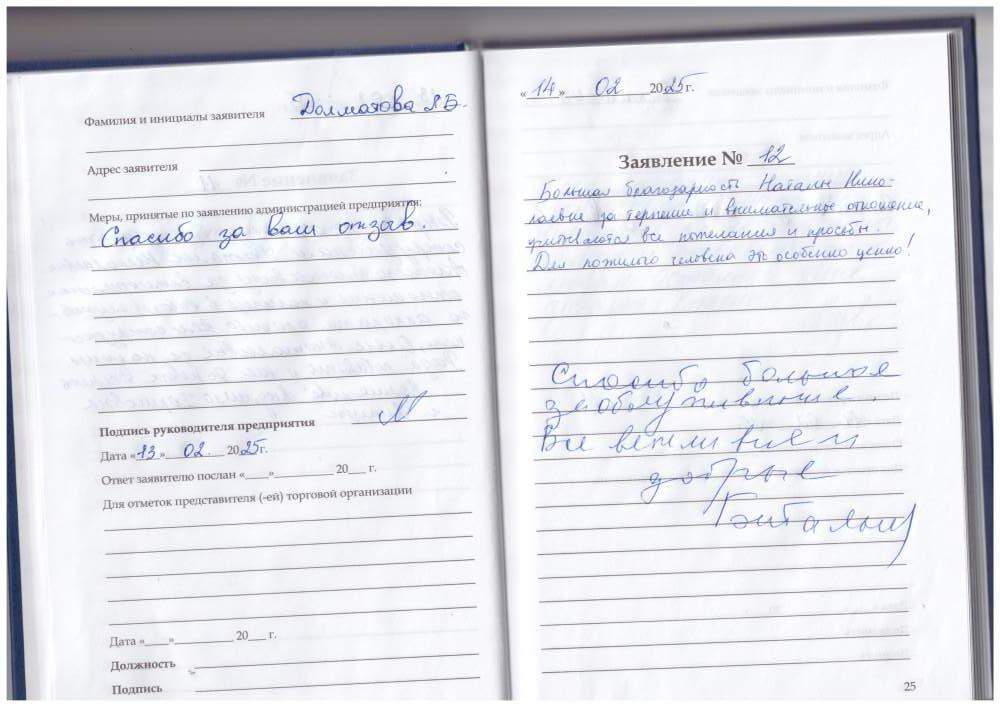 Фамилия и инициалы заявителя Долматова Л.Б.
Адрес заявителя
Меры, принятые по заявлению администрацией предприятия:
Спасибо за ваш отзыв.
Подпись руководителя предприятия
Дата «13» 02. 2025г.
Ответ заявителю послан «____»__________ 20___ г.
Для отметок представителя (-ей) торговой организации
Дата «____»__________ 20___ г.
Должность
Подпись
«14» 02 2025г.
Заявление № 12
Большая благодарность Наталье Нико-
лаевне за терпение и внимательные отношение,
учитываются все пожелания и просьбы.
Для пожилого человека это особенно ценно!
Спасибо большое
за обслуживание.
Все вежливые и
добрые
25